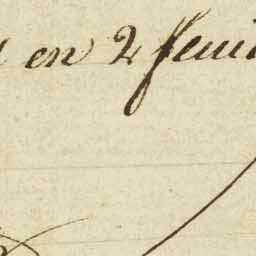 en 2 feuil